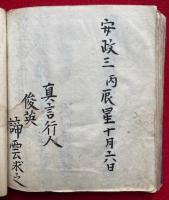 安政三丙辰星十月六日
真言行人
俊英
諦雲求之